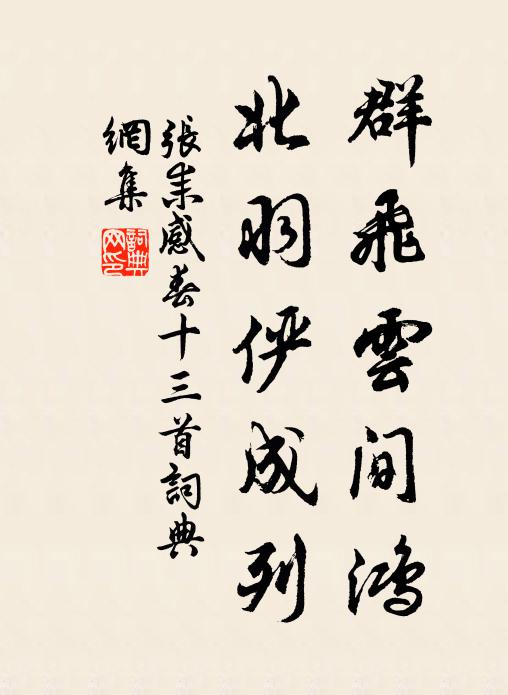 群飛雲间鴻
北羽俨成列
張耒感春十三首詞典
網集
詞典網印